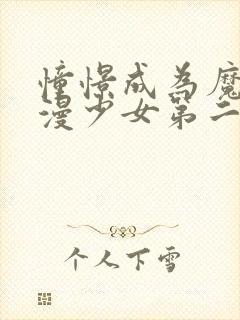 憧憬成为魔
漫少女第二
个人下雪